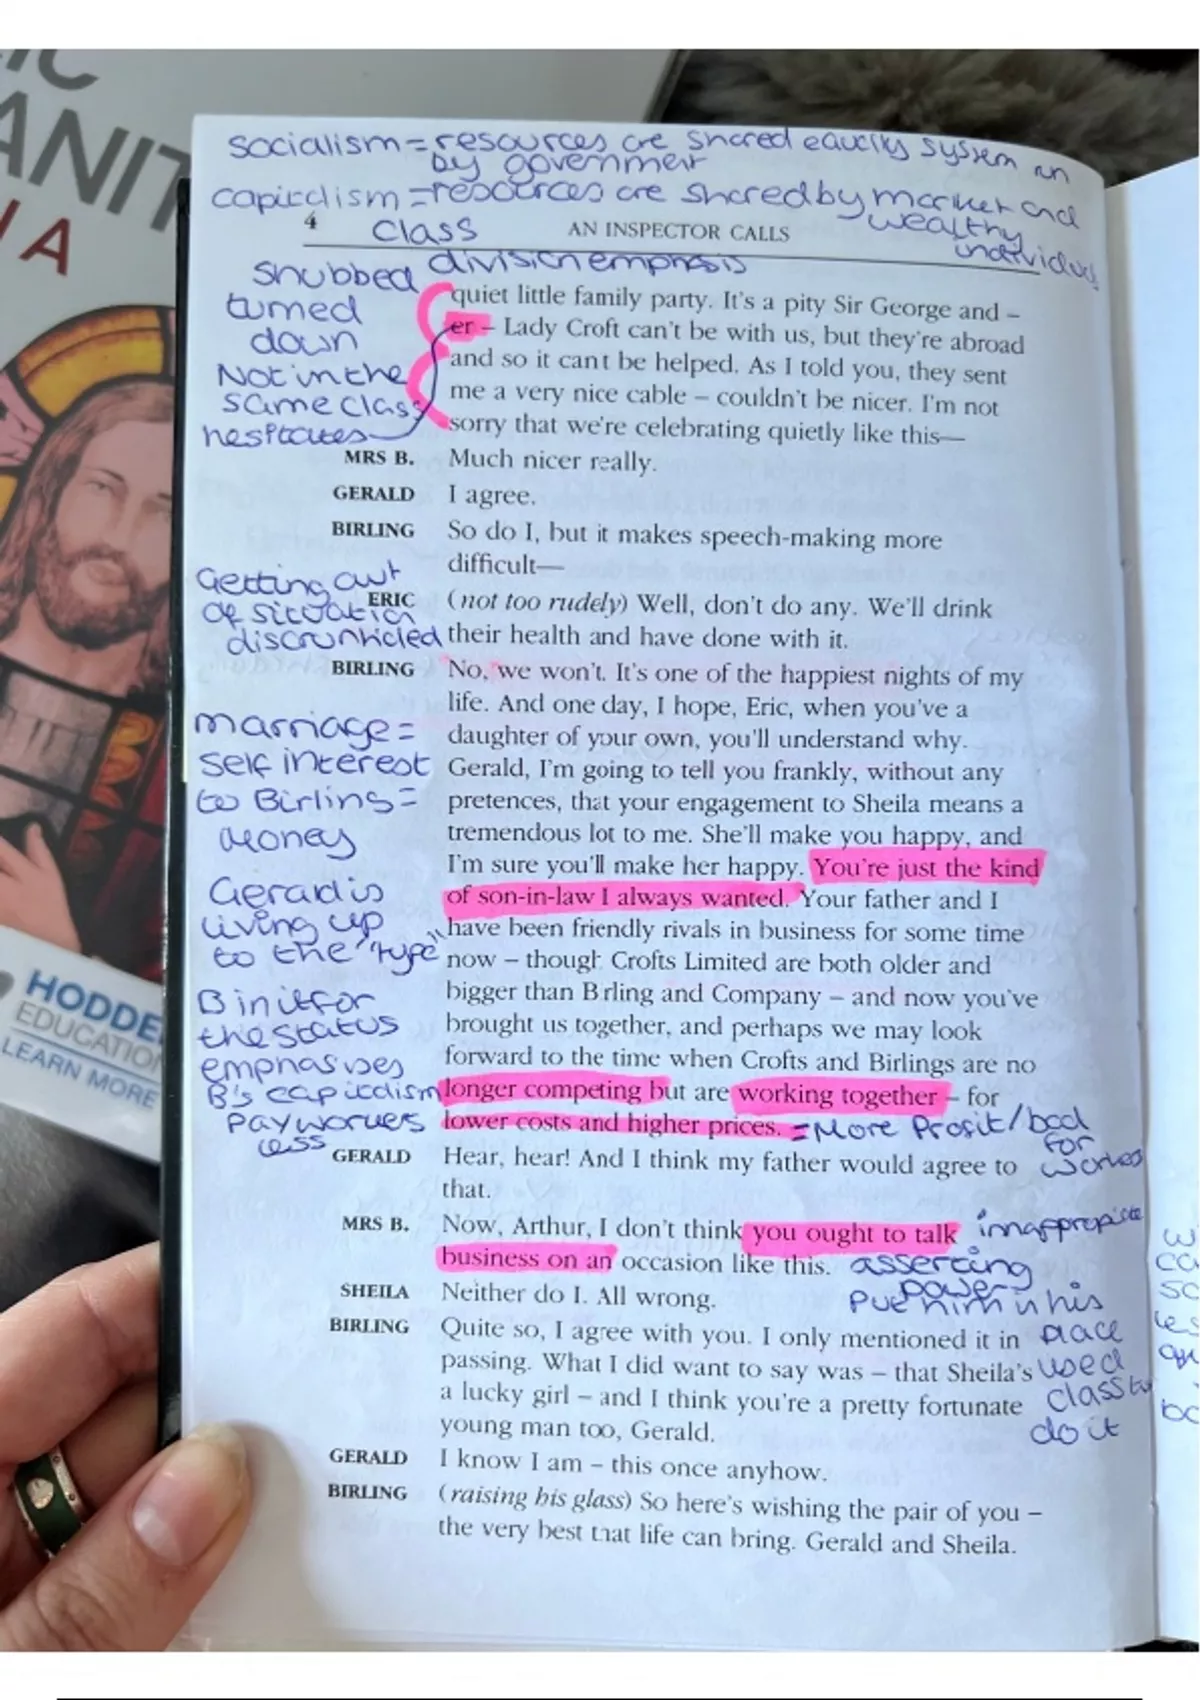 IC
ANIT
IA
HODDE
EDUCATION
LEARN MORE
socialism = resources are shared equally system run
by government
capitalism = resources are shared by market and
wealthy
individuals
4
class
AN INSPECTOR CALLS
division emphasis
snubbed
turned
down
Not in the
same class
hesitates
quiet little family party. It's a pity Sir George and –
er – Lady Croft can't be with us, but they're abroad
and so it can't be helped. As I told you, they sent
me a very nice cable – couldn't be nicer. I'm not
sorry that we're celebrating quietly like this—
MRS B. Much nicer really.
GERALD I agree.
BIRLING So do I, but it makes speech-making more
difficult—
Getting out
of situation
ERIC (not too rudely) Well, don't do any. We'll drink
their health and have done with it.
BIRLING No, we won't. It's one of the happiest nights of my
life. And one day, I hope, Eric, when you've a
daughter of your own, you'll understand why.
Gerald, I'm going to tell you frankly, without any
pretences, that your engagement to Sheila means a
tremendous lot to me. She'll make you happy, and
I'm sure you'll make her happy. You're just the kind
of son-in-law I always wanted. Your father and I
have been friendly rivals in business for some time
now – though Crofts Limited are both older and
bigger than Birling and Company – and now you've
brought us together, and perhaps we may look
forward to the time when Crofts and Birlings are no
longer competing but are working together – for
lower costs and higher prices.
marriage =
self interest
to Birling =
money
Gerald is
living up
to the "type"
B in it for
the status
emphasises
B's capitalism
pay workers
less
= More Profit / bad
for
workers
GERALD Hear, hear! And I think my father would agree to
that.
MRS B. Now, Arthur, I don't think you ought to talk
business on an occasion like this.
inappropriate
asserting
power
put him in his
place
used
class to
do it
SHEILA Neither do I. All wrong.
BIRLING Quite so, I agree with you. I only mentioned it in
passing. What I did want to say was – that Sheila's
a lucky girl – and I think you're a pretty fortunate
young man too, Gerald.
GERALD I know I am – this once anyhow.
BIRLING (raising his glass) So here's wishing the pair of you –
the very best that life can bring. Gerald and Sheila.